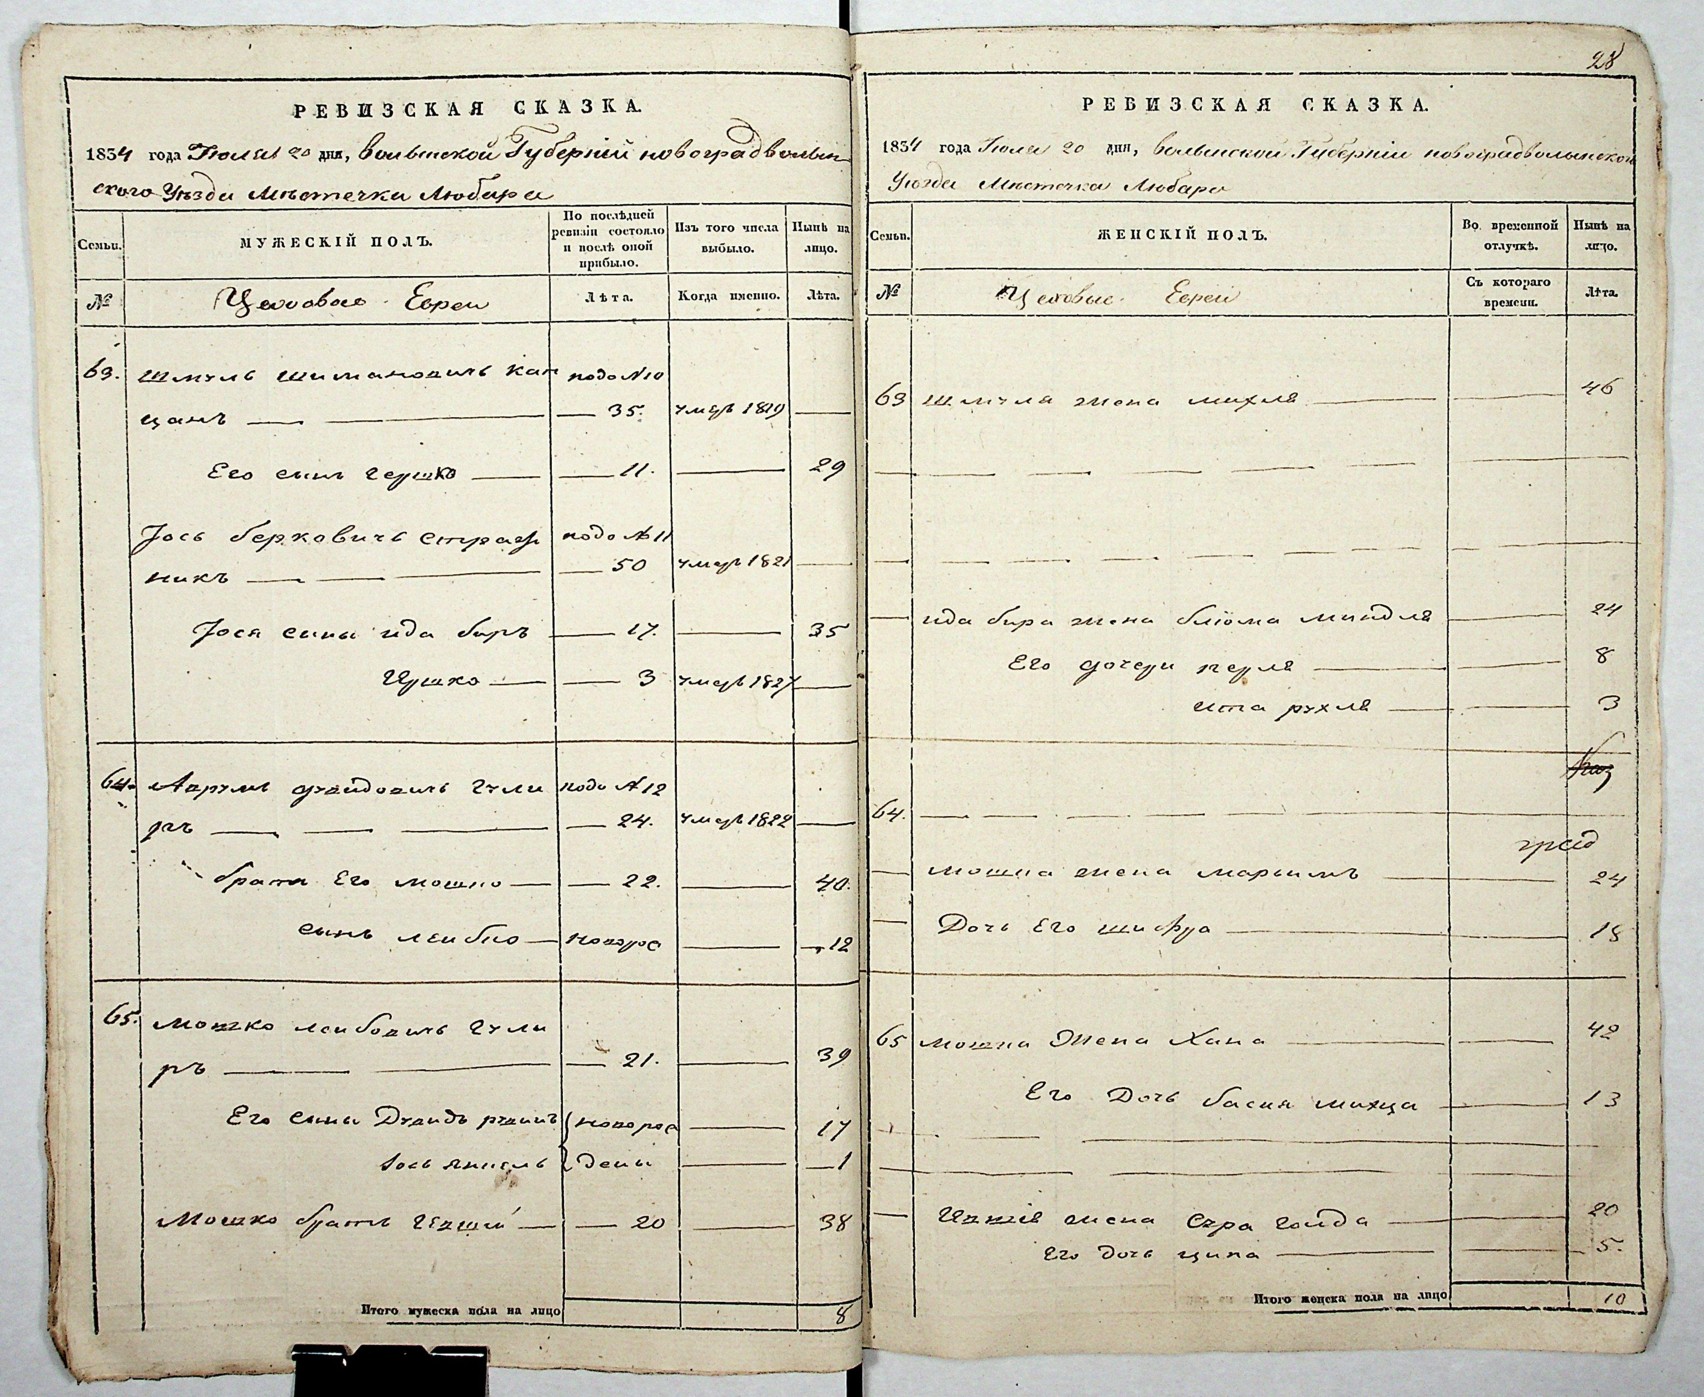 РЕВИЗСКАЯ СКАЗКА.
1834 года Июля 20 дня, волынской Губерніи новоградволын
ского Уѣзда Мѣстечка Любара
Семьи.
МУЖЕСКІЙ ПОЛЪ.
По послѣдней ревизіи состояло и послѣ оной прибыло.
Изъ того числа выбыло.
Нынѣ на лицо.
№
Цеховые Евреи
Лѣта.
Когда именно.
Лѣта.
63. Шмуль Шимановичъ Кап подо №10
цанъ 35. умеръ 1819
Его сынъ Гершко 11. 29
Іось берковичъ подо №11
никъ 50 умеръ 1821
Іося сыны ида беръ 17. 35
Гершко 3 умеръ 1827
64. Аврумъ дувидовичъ Гули подо №12
ръ 24. умеръ 1822
братъ Его мошко 22. 40.
сынъ леибко новорос 12
65. Мошко леибовичъ Гули
ръ 21. 39
Его сыны Дувидъ рувинъ новорос 17
Іось янкель дены 1
Мошко братъ 20 38
Итого мужеска пола на лицо 8
28
РЕВИЗСКАЯ СКАЗКА.
1834 года Июля 20 дня, волынской Губерніи новоградволынского
Уѣзда Мѣстечка Любара
Семьи.
ЖЕНСКІЙ ПОЛЪ.
Во временной отлучкѣ.
Нынѣ на лицо.
№
Цеховые Евреи
Съ котораго времени.
Лѣта.
63 Шмуля жена михля 46
ида бера жена блюма миндля 24
Его дочери перля 8
ита рухля 3
64.
мошка жена марьимъ 24
Дочь Его шифра 18
65 мошка Жена Хана 42
Его Дочь басия 13
жена Сура голда 20
Его дочь ципа 5.
Итого женска пола на лицо 10